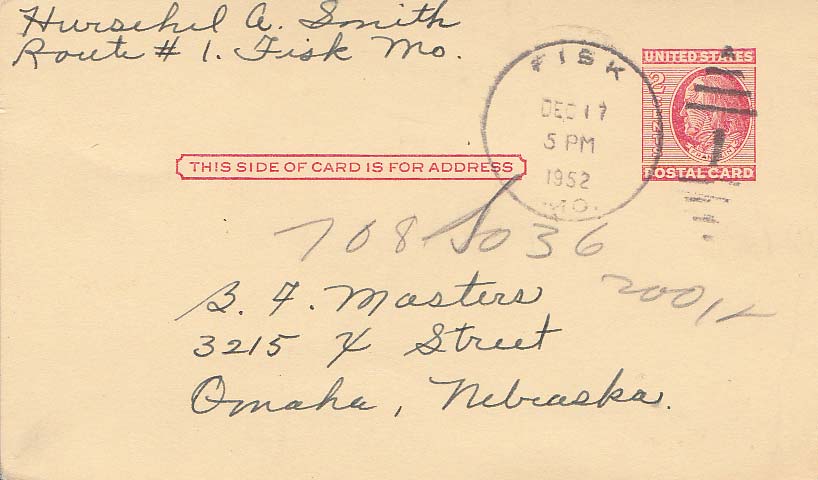 Hurschel A. Smith
Route # 1. Fisk Mo.
FISK
DEC 17
5 PM
1952
MO.
UNITED STATES
2 CENTS
FRANKLIN
POSTAL CARD
THIS SIDE OF CARD IS FOR ADDRESS
B. F. Masters
3215 Y Street
Omaha, Nebraska.